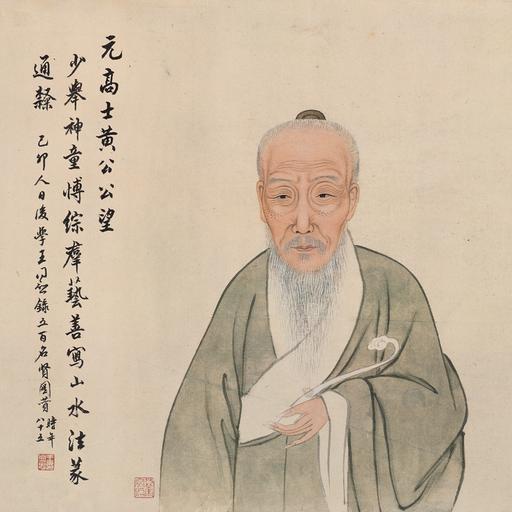 元高士黃公公望
少舉神童博綜羣藝善寫山水法篆
通隸 己卯人日後學王同愈錄五百名賢圖贊時年
八十五